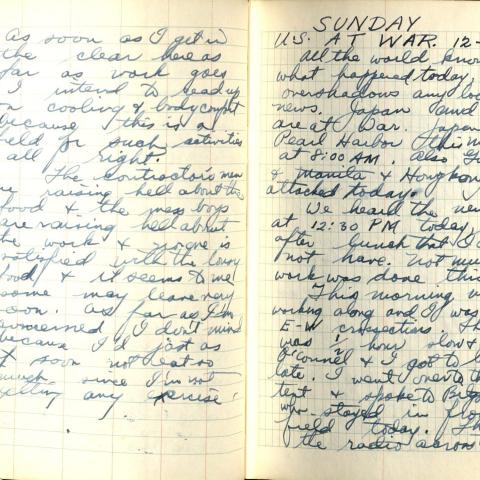 as soon as I get in
the clear here as
far as work goes
I intend to read up
on cooling & body comfort
because this is a
field for such activities
all right.
The contractors men
are raising hell about the
food & the mess boys
are raising hell about
the work & no one is
satisfied with the lousy
food & it seems to me
some may leave very
soon. As far as I'm
concerned I don't mind
because I'd just as
soon not eat so
much since I'm not
getting any exercise.
SUNDAY
U.S. AT WAR. 12-
All the world know
what happened today,
overshadows any loc
news. Japan and
are at war. Japan
Pearl Harbor this m
at 8:00 AM. Also
& manila & Hongkon
attacked today.
We heard the new
at 12:30 PM today
after lunch that I
not have. Not mu
work was done this
This morning w
working along and I was
E-W
was ½ hour slow &
O'Connel & I got to
late. I went over to th
tent & spoke to
who stayed in
field today. Th
the radio across